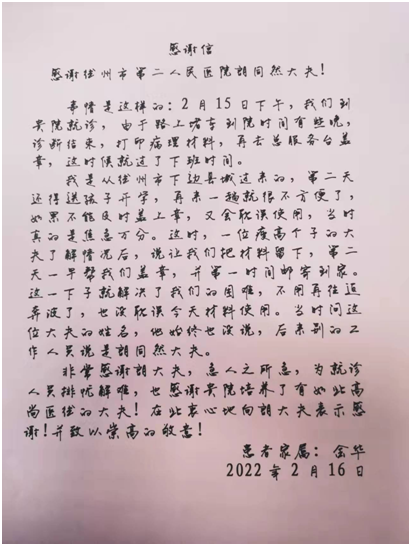 感谢信
感谢徐州市第二人民医院胡同然大夫!
事情是这样的:2月15日下午,我们到
贵院就诊,由于路上堵车到院时间有些晚,
诊断结束,打印病理材料,再去总服务台盖
章,这时候就过了下班时间。
我是从徐州市下边县城过来的,第二天
还得送孩子开学,再来一趟就很不方便了,
如果不能及时盖上章,又会耽误使用,当时
真的是焦急万分。这时,一位瘦高个子的大
夫了解情况后,说让我们把材料留下,第二
天一早帮我们盖章,并第一时间邮寄到家。
这一下子就解决了我们的困难,不用再往返
奔波了,也没耽误今天材料使用。当时问这
位大夫的姓名,他始终也没说,后来别的工
作人员说是胡同然大夫。
非常感谢胡大夫,急人之所急,为就诊
人员排忧解难,也感谢贵院培养了有如此高
尚医德的大夫!在此衷心地向胡大夫表示感
谢!并致以崇高的敬意!
患者家属:金华
2022年2月16日